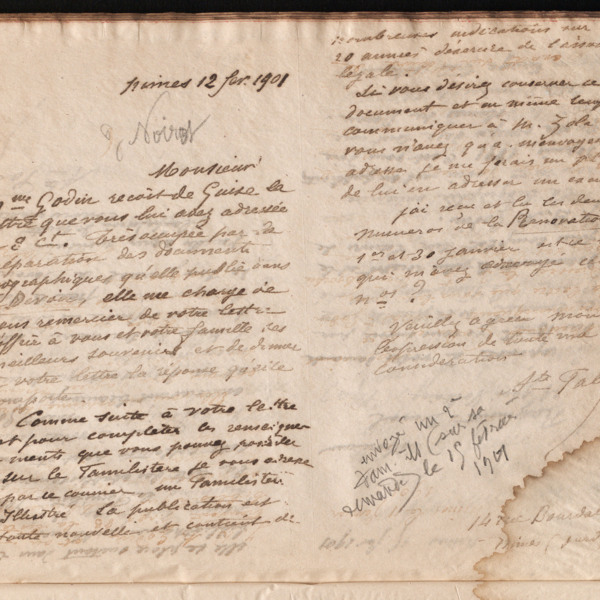 Nimes 12 fev. 1901
Noirot
Monsieur
Mme Godin reçoit de Guise la
lettre que vous lui avez adressée
le 8 Ct. Très occupée par la
préparation des documents
biographiques qu'elle publie dans
le Devoir, elle me charge de
vous remercier de votre lettre
d'offrir à vous et votre famille ses
meilleurs souvenirs et de donner
à votre lettre la réponse qu'elle
comporte.
Comme suite à votre lettre
et pour compléter les renseigne
ments que vous pouvez posséder
sur le Familistère je vous adresse
par ce courrier un Familistère
Illustré. La publication est
toute nouvelle et contient de
nombreuses indications sur
20 années d'exercice de l'asso
légale.
Si vous désirez conserver ce
document et en même temps
communiquer à M. Zola
vous n'avez qu'à m'envoyer
adresse je me ferais un pl
de lui en adresser un exem
J'ai reçu et lu les deux
numéros de la Renovation
1er et 30 janvier est ce
qui m'avez envoyé ce
nos ?
Veuillez agréer Mon
l'expression de toute ma
considération
envoyé un 2e
fam. Ill sur sa
demande le 15 février
1901
14 rue Bourdal
Nîmes (Gard